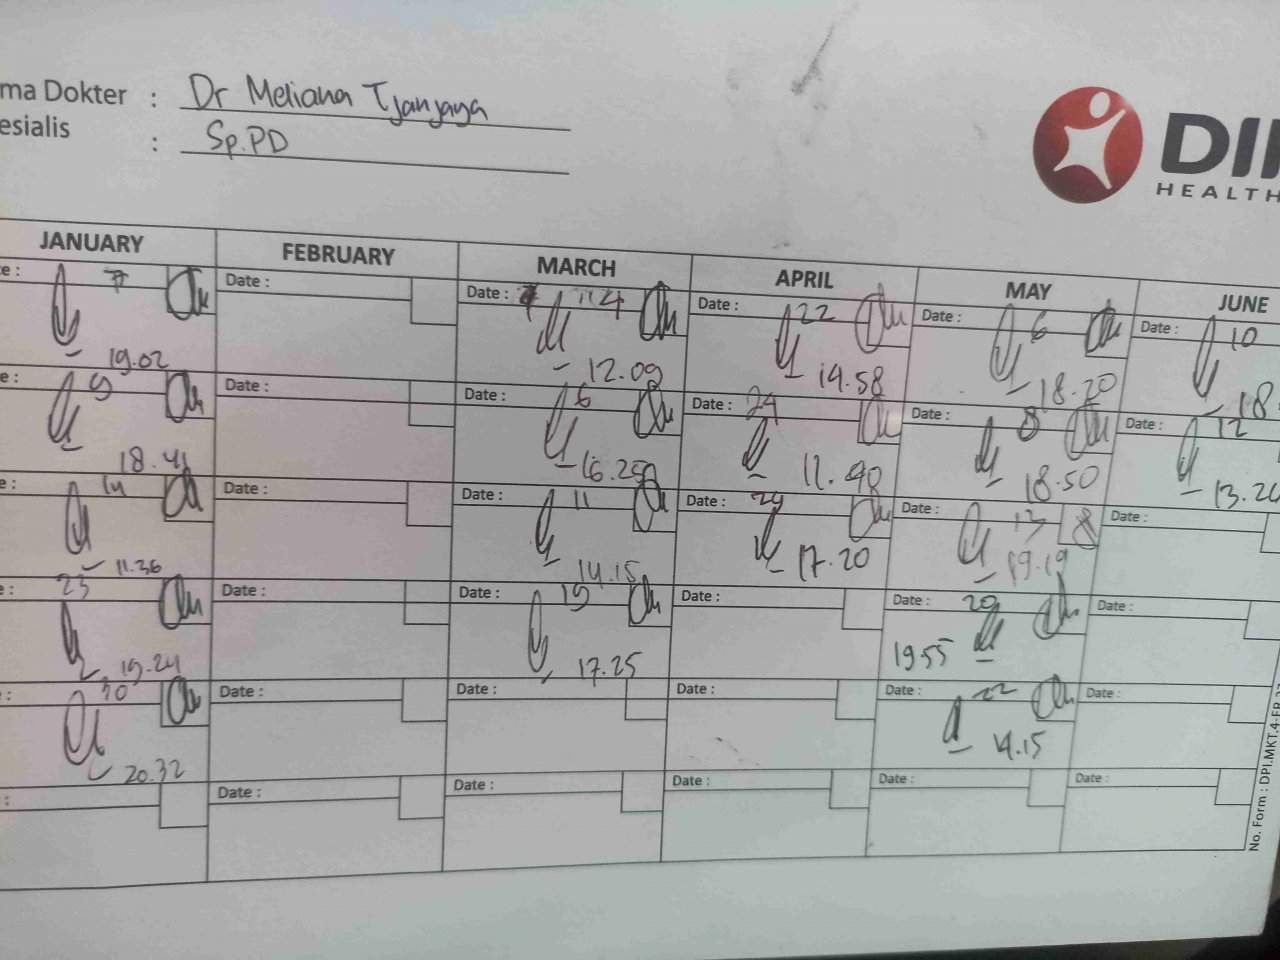 ma Dokter : Dr Meliana Tjanjaya
esialis : Sp.PD
DI
HEALTH
JANUARY FEBRUARY MARCH APRIL MAY JUNE
e : 7 Date : Date : 4 Date : 22 Date : 6 Date : 10
19.02 12.09 14.58 18.20 18.
e : 9 Date : Date : 6 Date : 24 Date : 8 Date : 12
18.41 16.25 11.40 18.50 13.24
e : 14 Date : Date : 11 Date : 29 Date : 13 Date :
11.36 14.15 17.20 19.19
e : 23 Date : Date : 19 Date : Date : 20 Date :
19.24 17.25 19.55
: 30 Date : Date : Date : Date : 22 Date :
20.32 14.15
: Date : Date : Date : Date : Date :
No. Form : DPI.MKT.4-FR